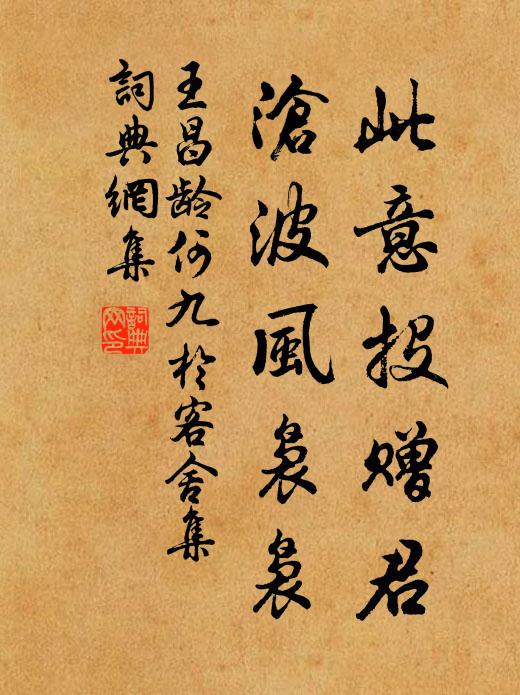 此意投赠君
滄波風裊裊
王昌龄何九於客舍集
詞典網集
詞典網印